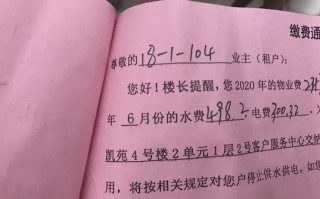 缴费通
尊敬的 18-1-104 业主（租户）：
您好！楼长提醒，您2020年的物业费
年 6 月份的水费 498.2 电费 300.32
凯苑4号楼2单元1层2号客户服务中心交纳
用，将按相关规定对您户停止供水供电，如